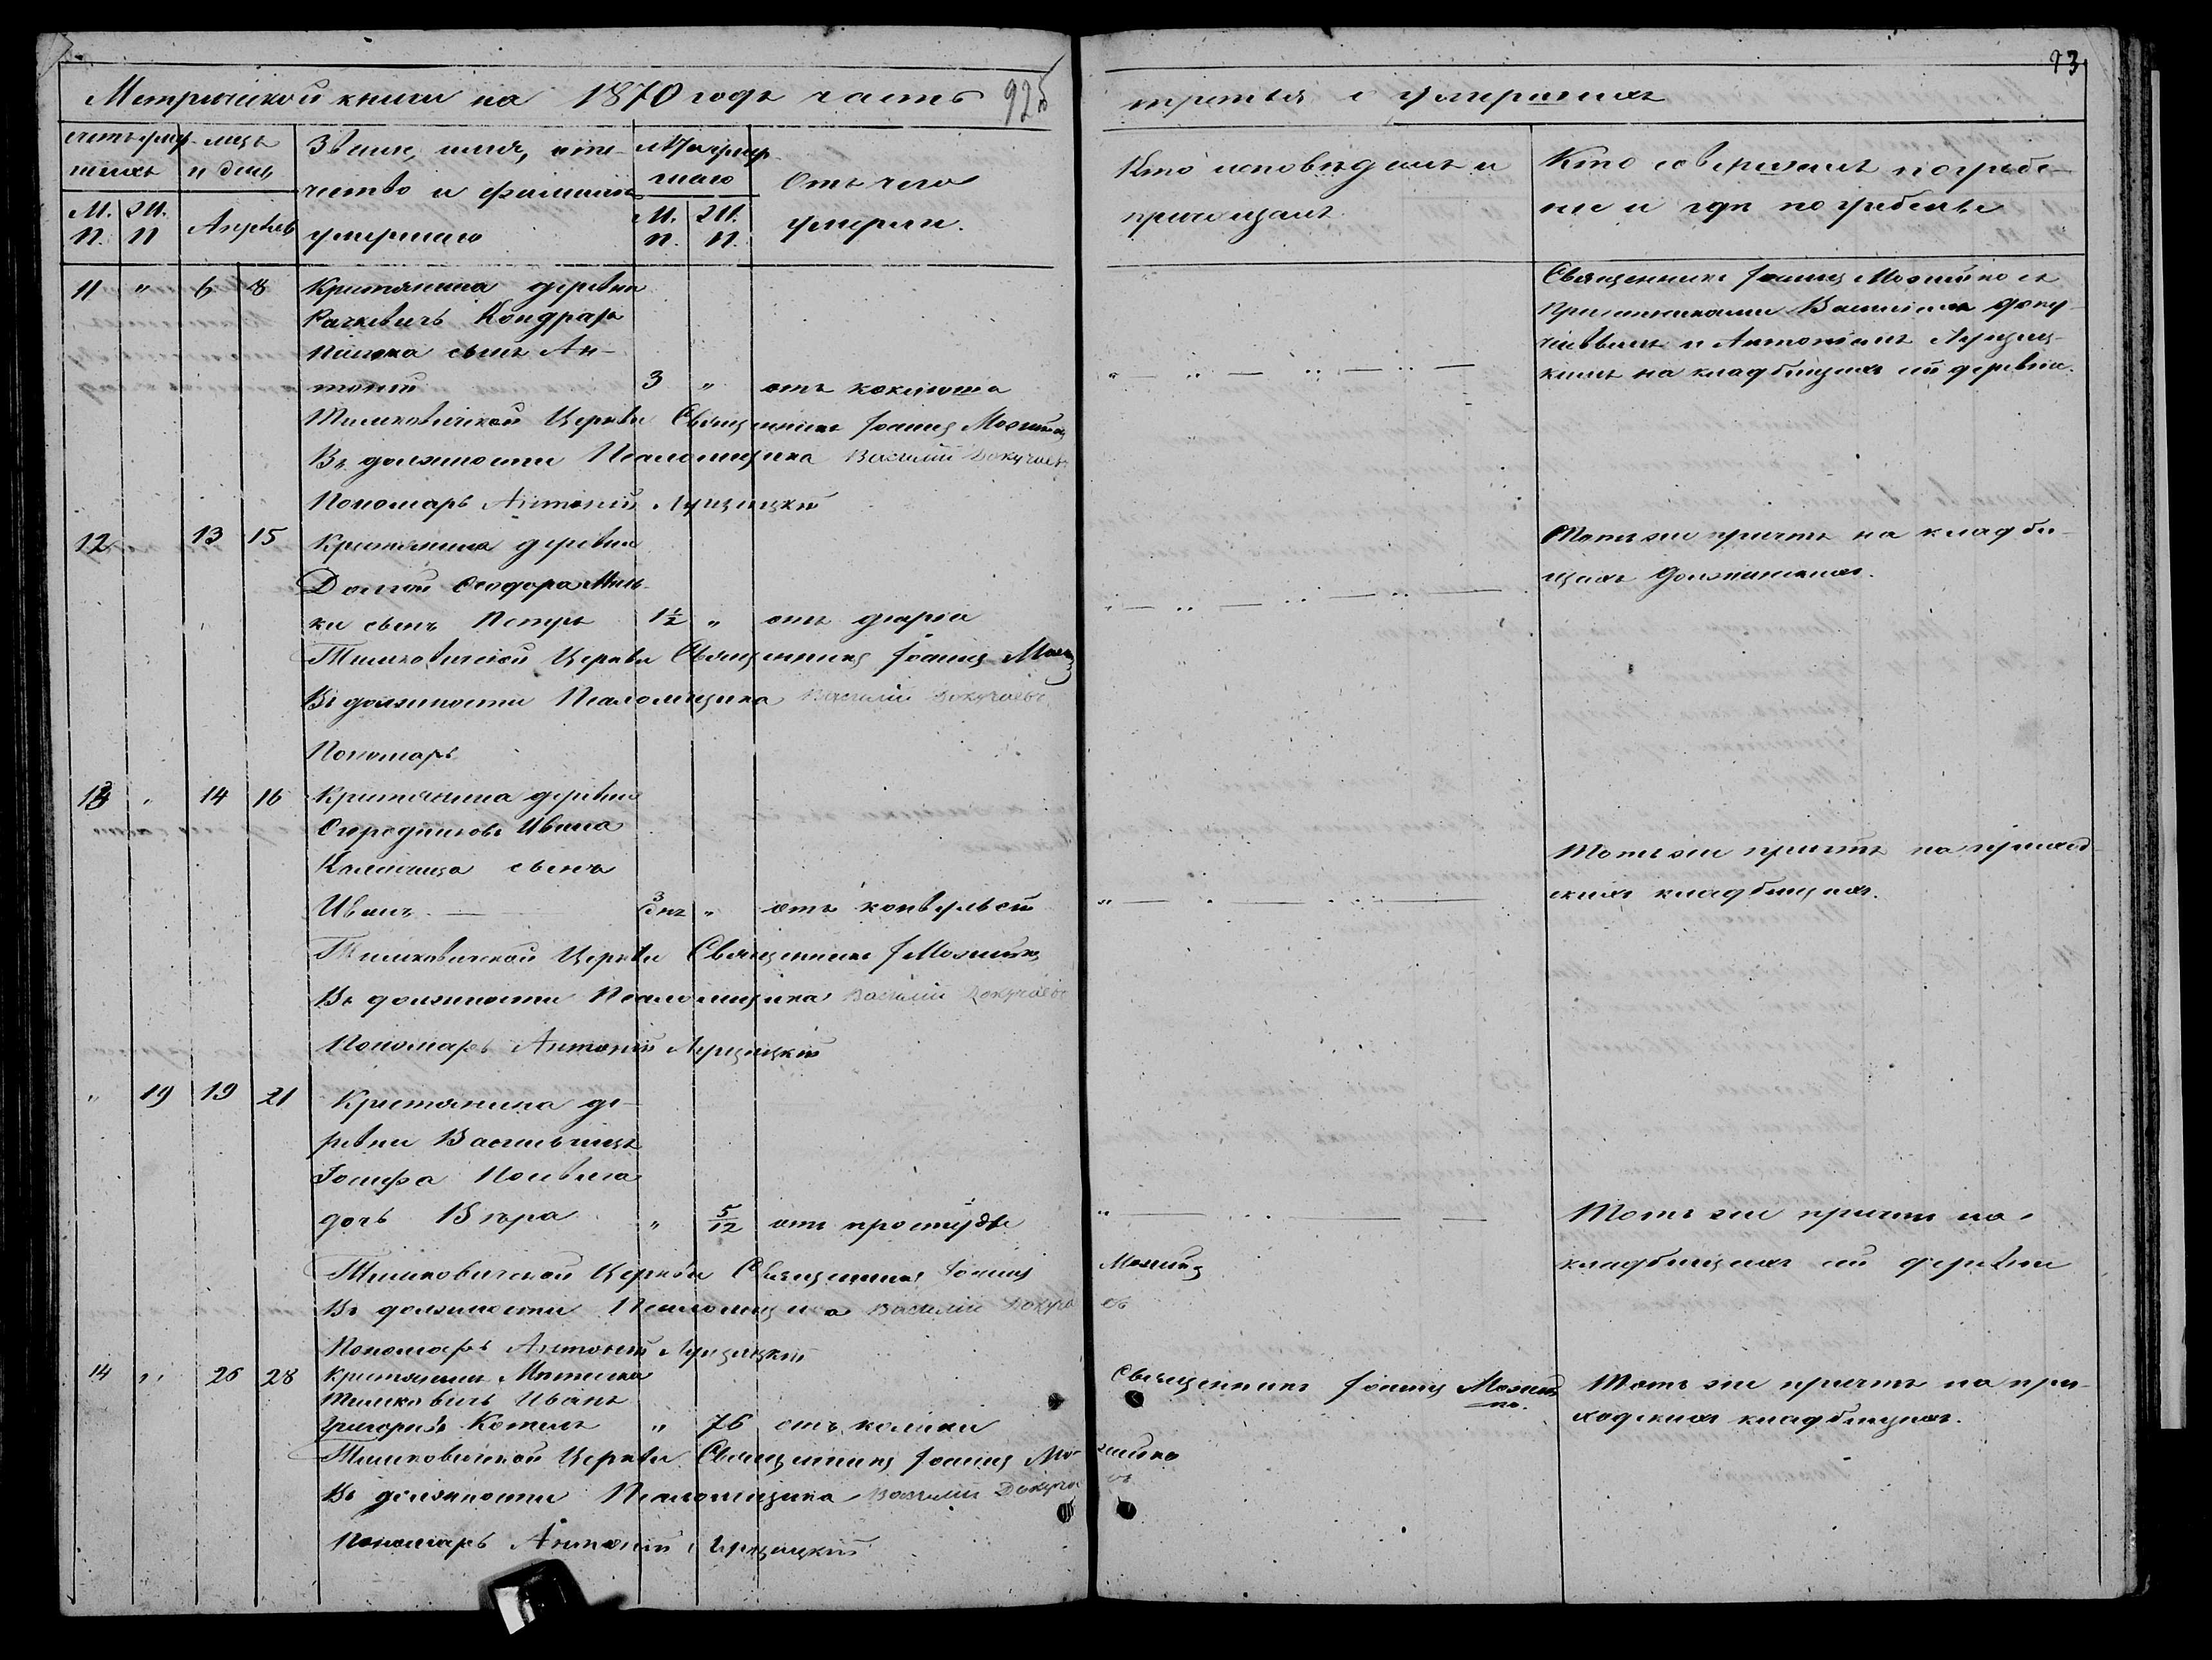 Метрической книги на 1870 годъ часть
925
третья о умершихъ
93
Счетъ умер-
шихъ
М.
п.
Ж.
п
м-цъ
и день
Апрель
Званіе, имя, оте-
чество и фамилія
умершаго
Лѣта умер
шаго
М.
п.
Ж.
п.
Отъ чего
умерли.
Кто исповѣдалъ и
причащалъ
Кто совершалъ погребе-
ніе и гдѣ погребены
11 " 6 8 Крестьянина деревни
Рачкевичъ Кондрата
сынъ Ан-
тоній 3 " отъ коклюша
Священникъ Іоаннъ Мозейко съ
причетниками Василіемъ Доку-
чаевымъ и Антоніемъ Лущиц-
кимъ на кладбищахъ сей деревни.
Тимковичской Церкви Священникъ Іоаннъ Мозейко
Въ должности Псаломщика Василій Докучаевъ
Пономарь Антоній Лущицкій
12 " 13 15 Крестьянина деревни
Долгой Ѳеодора Миль-
ки сынъ Петръ 1½ " отъ діаріи
Тотъ же причтъ на кладби-
щахъ
Тимковичской Церкви Священникъ Іоаннъ
Въ должности Псаломщика Василій Докучаевъ
Пономарь
13 " 14 16 Крестьянина деревни
Огородниковъ Ивана
сынъ
Иванъ 3 дн. " отъ конвульсій
Тотъ же причтъ на приход
скихъ кладбищахъ.
Тимковичской Церкви Священникъ І Мозейко
Въ должности Псаломщика Василій Докучаевъ
Пономарь Антоній Лущицкій
" 19 19 21 Крестьянина де-
ревни Васильчицъ
Іосифа
дочь Вѣра " 5/12 отъ простуды
Тотъ же причтъ на
кладбищахъ сей деревни
Тимковичской Церкви Священникъ Іоаннъ Мозейко
Въ должности Псаломщика Василій Докучаевъ
Пономарь Антоній Лущицкій
14 " 26 28 Крестьянинъ Мѣстечка
Тимковичъ Иванъ
Григорьевъ " 76 отъ колики
Священникъ Іоаннъ Мозей
ко.
Тотъ же причтъ на при-
ходскихъ кладбищахъ.
Тимковичской Церкви Священникъ Іоаннъ Мозейко
Въ должности Псаломщика Василій Докучаевъ
Пономарь Антоній Лущицкій